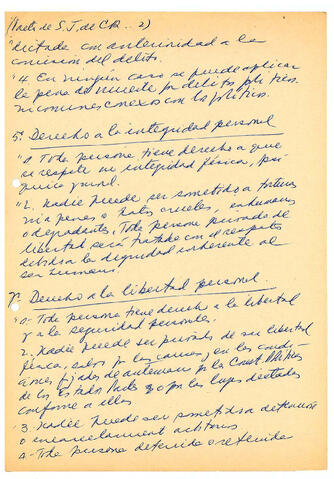 (Pacto de S.J. de CR. 2)
"dictada con anterioridad a la
comisión del delito.
"4. En ningún caso se puede aplicar
la pena de muerte por delitos políticos
ni comunes conexos con los políticos.
5. Derecho a la integridad personal
"1. Toda persona tiene derecho a que
se respete su integridad física, psí
quica y moral.
"2. Nadie puede ser sometido a torturas
ni a penas o tratos crueles, inhumanos
o degradantes. Toda persona privada de
libertad será tratada con el respeto
debido a la dignidad inherente al
ser humano.
7. Derecho a la libertad personal.
"1. Toda persona tiene derecho a la libertad
y a la seguridad personales.
2. Nadie puede ser privado de su libertad
física, salvo por las causas y en las condi
ciones fijadas de antemano por la Const. Políticas
de los Estados Partes o por las leyes dictadas
conforme a ellas
"3. Nadie puede ser sometido a detención
o encarcelamiento arbitrarios
4. Toda persona detenida o retenida